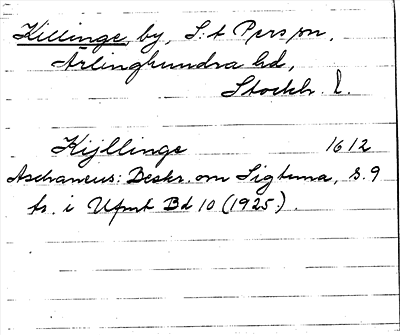 Killinge, by, S:t Persson,
Ärlinghundra hd,
Stockh. l.
Kijllinge 1612
Aschaneus: Beskr. om Sigtuna, s. 9
ts. i Ufmt Bd 10 (1925).